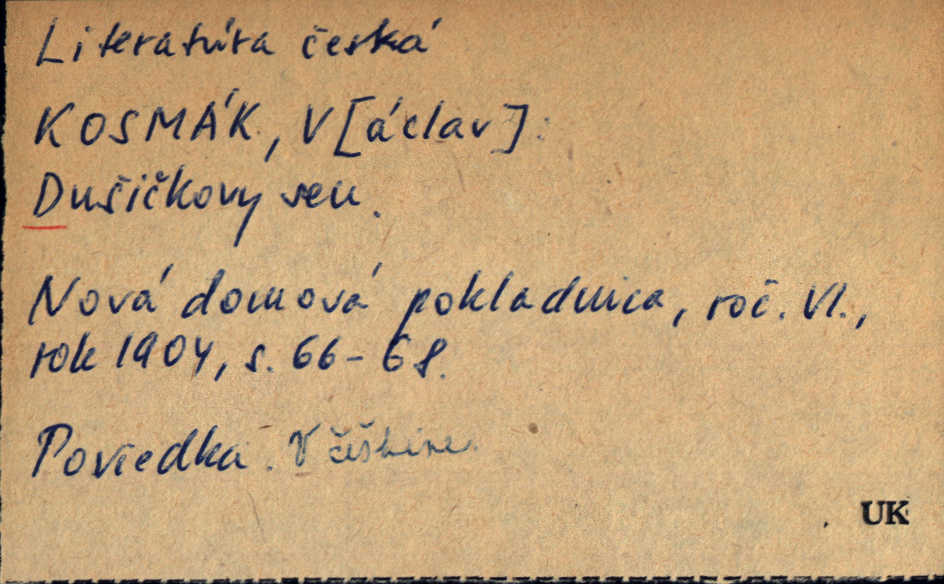 Literatúra česká
KOSMÁK, V[áclav]:
Dušičkový sen.
Nová domová pokladnica, roč. VI.,
rok 1904, s. 66-68.
Poviedka. V češtine.
UK